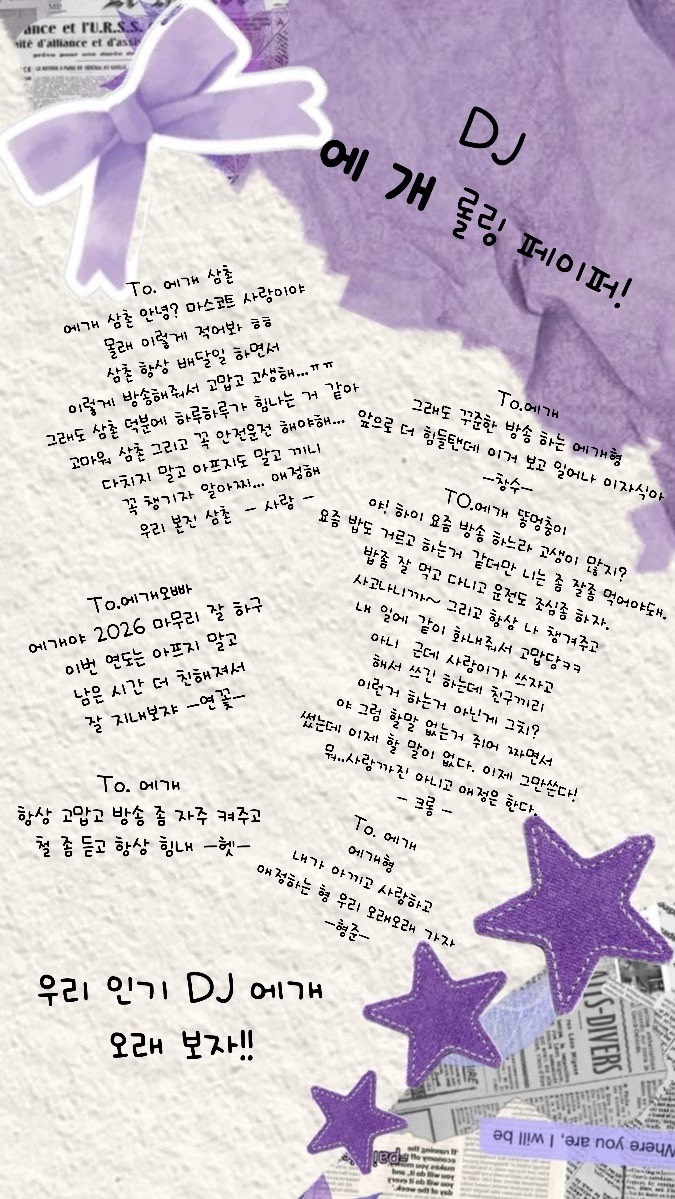 ance et l'U.R.S.S.
ité d'alliance et d'assis
DJ
에 개 롤링 페이퍼!
To. 에개 삼촌
에개 삼촌 안녕? 마스코트 사랑이야
몰래 이렇게 적어봐 ㅎㅎ
삼촌 항상 배달일 하면서
이렇게 방송해줘서 고맙고 고생해...ㅠㅠ
그래도 삼촌 덕분에 하루하루가 힘나는 거 같아
고마워 삼촌 그리고 꼭 안전운전 해야해...
다치지 말고 아프지도 말고 끼니
꼭 챙기자 알아찌... 애정해
우리 본진 삼촌 - 사랑 -
To.에개
그래도 꾸준한 방송 하는 에개형
앞으로 더 힘들탠데 이거 보고 일어나 이자식아
-창수-
TO.에개 뚱멍충이
야! 하이 요즘 방송 하느라 고생이 많지?
요즘 밥도 거르고 하는거 같더만 니는 좀 잘좀 먹어야돼.
밥좀 잘 먹고 다니고 운전도 조심좀 하자.
사고나니까~ 그리고 항상 나 챙겨주고
내 일에 같이 화내줘서 고맙당ㅋㅋ
아니 근데 사랑이가 쓰자고
해서 쓰긴 하는데 친구끼리
이런거 하는거 아닌게 그치?
야 그럼 할말 없는거 쥐어 짜면서
썼는데 이제 할 말이 없다. 이제 그만쓴다!
뭐..사랑까진 아니고 애정은 한다.
- 크롱 -
To.에개오빠
에개야 2026 마무리 잘 하구
이번 연도는 아프지 말고
남은 시간 더 친해져서
잘 지내보쟈 -연꽃-
To. 에개
항상 고맙고 방송 좀 자주 켜주고
철 좀 듣고 항상 힘내 -헷-
To. 에개
에개형
내가 아끼고 사랑하고
애정하는 형 우리 오래오래 가자
-형준-
우리 인기 DJ 에개
오래 보자!!
S-DIVERS
Where you are, I will be